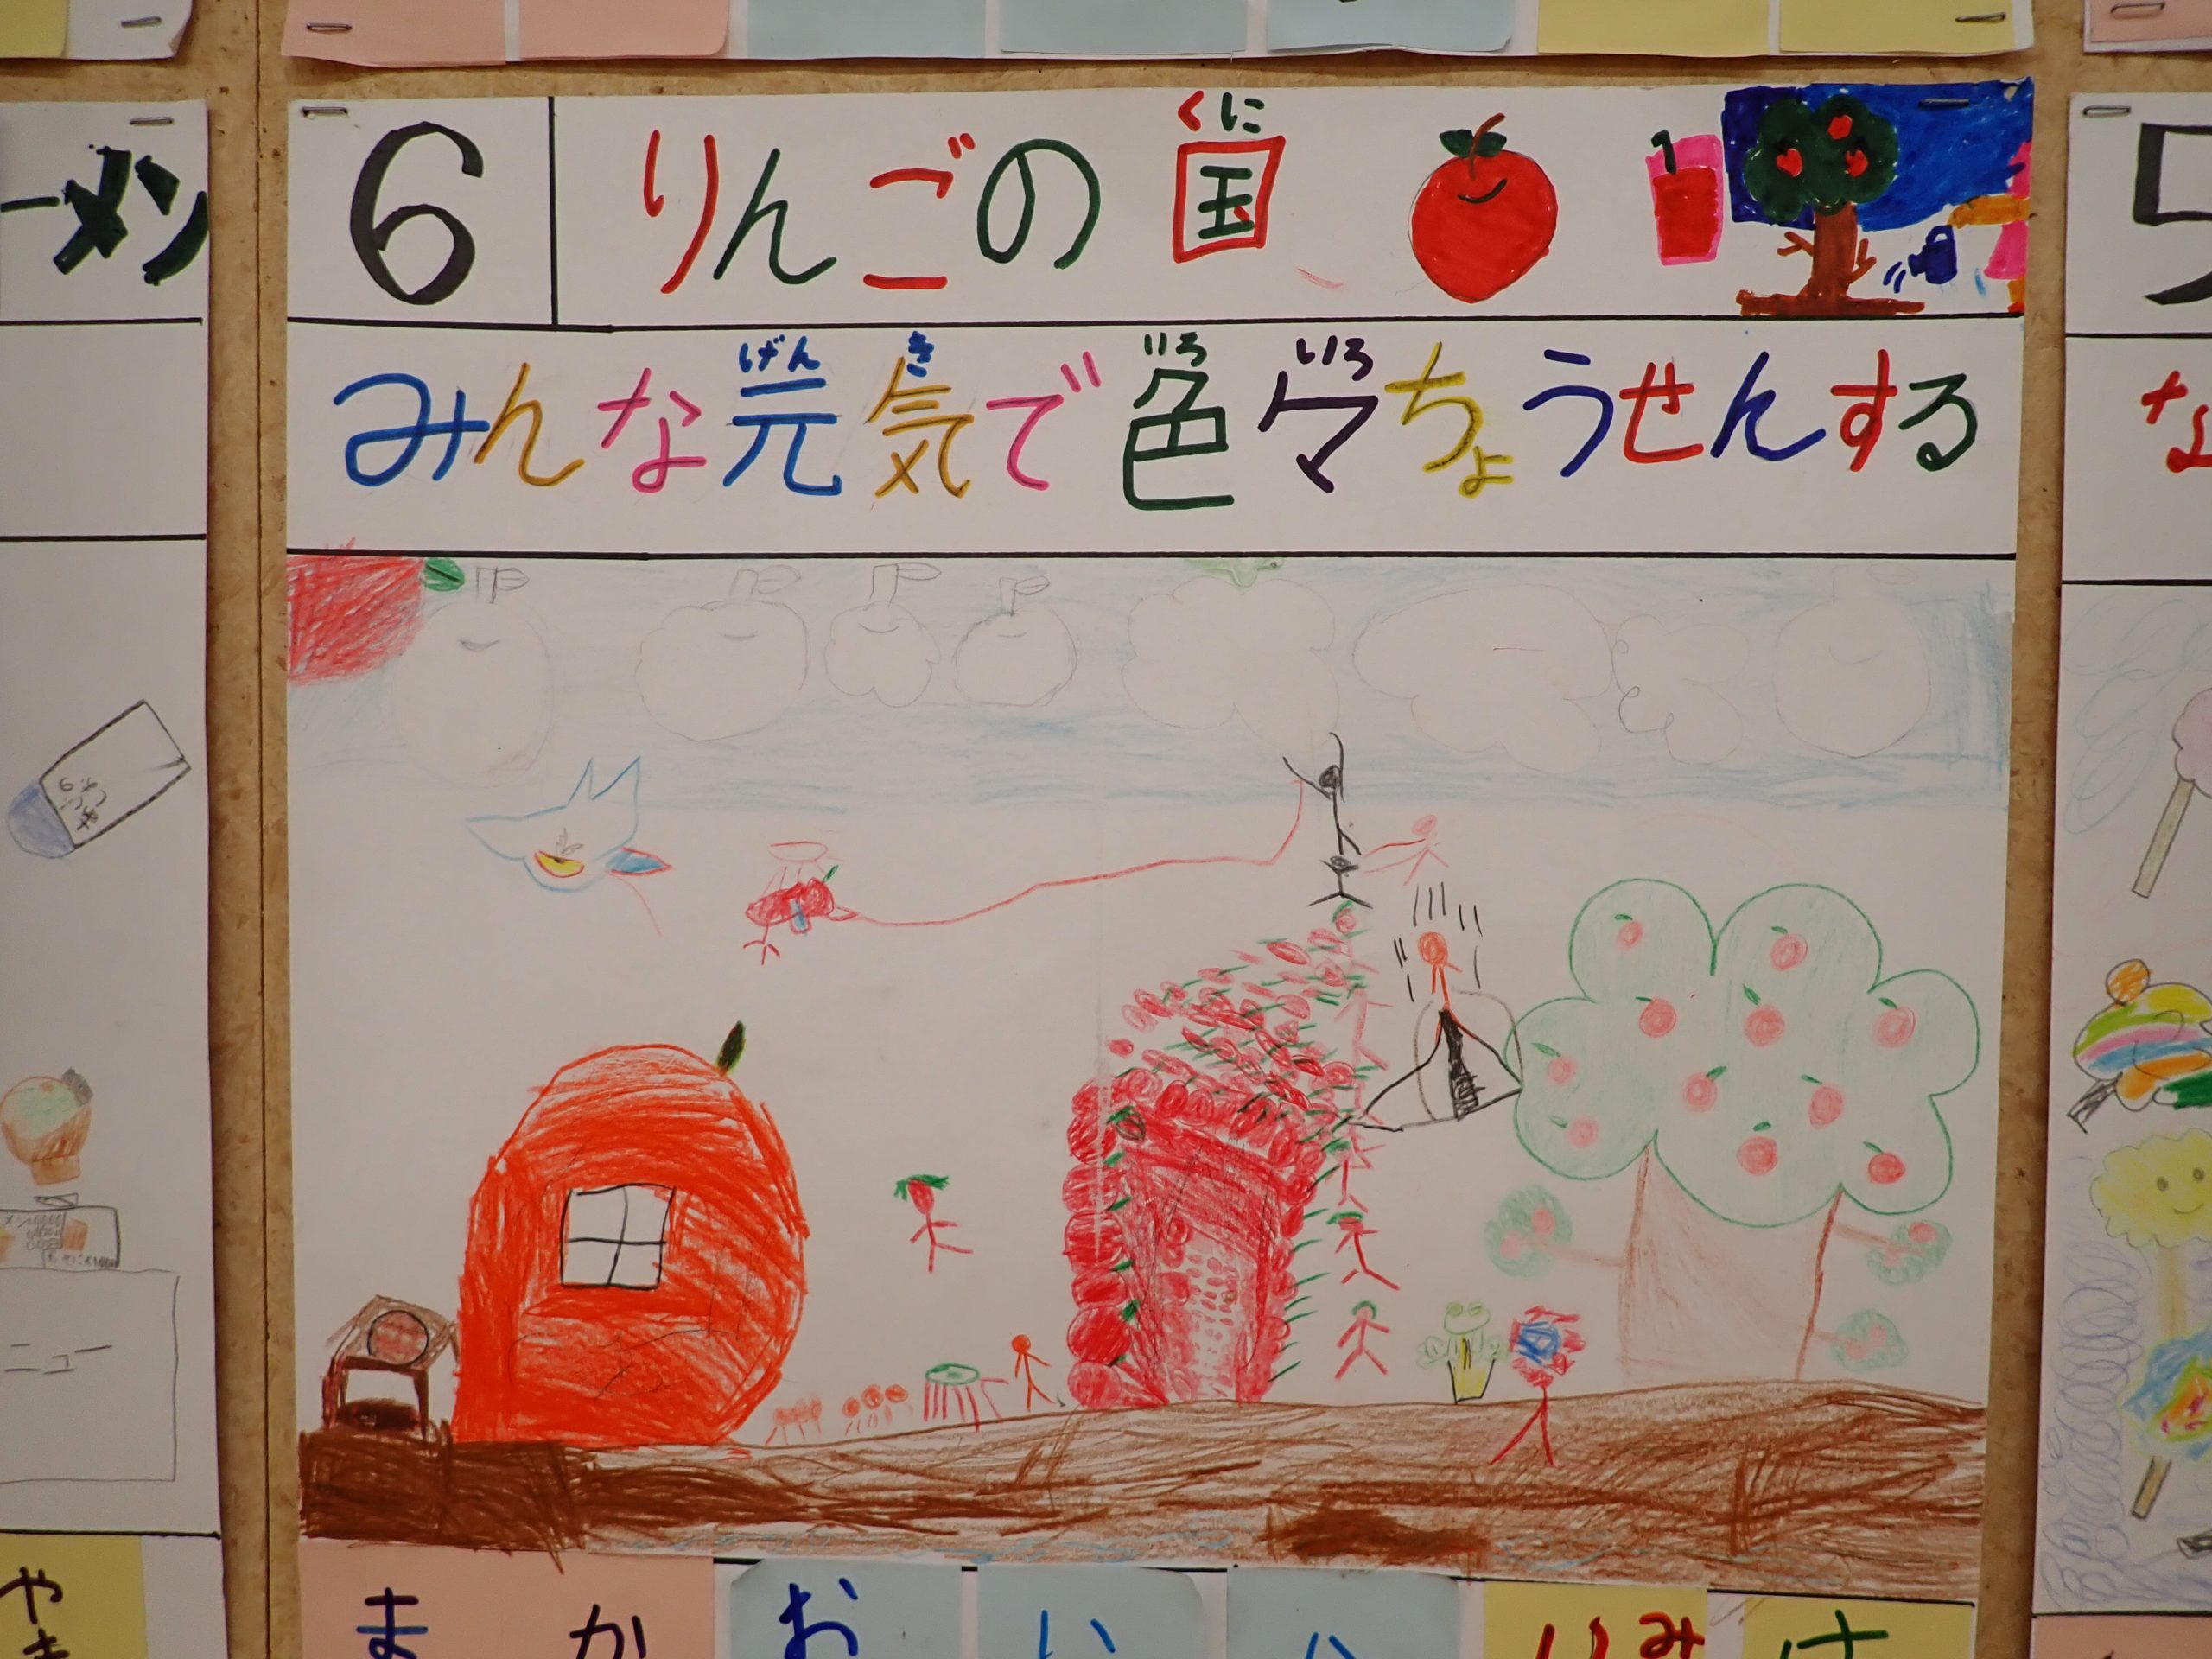 ーメン
6 りんごの国
くに
みんな元気で色々ちょうせんする
げんき いろいろ
5
な
ニュー
やま
ま か お い い りみ け